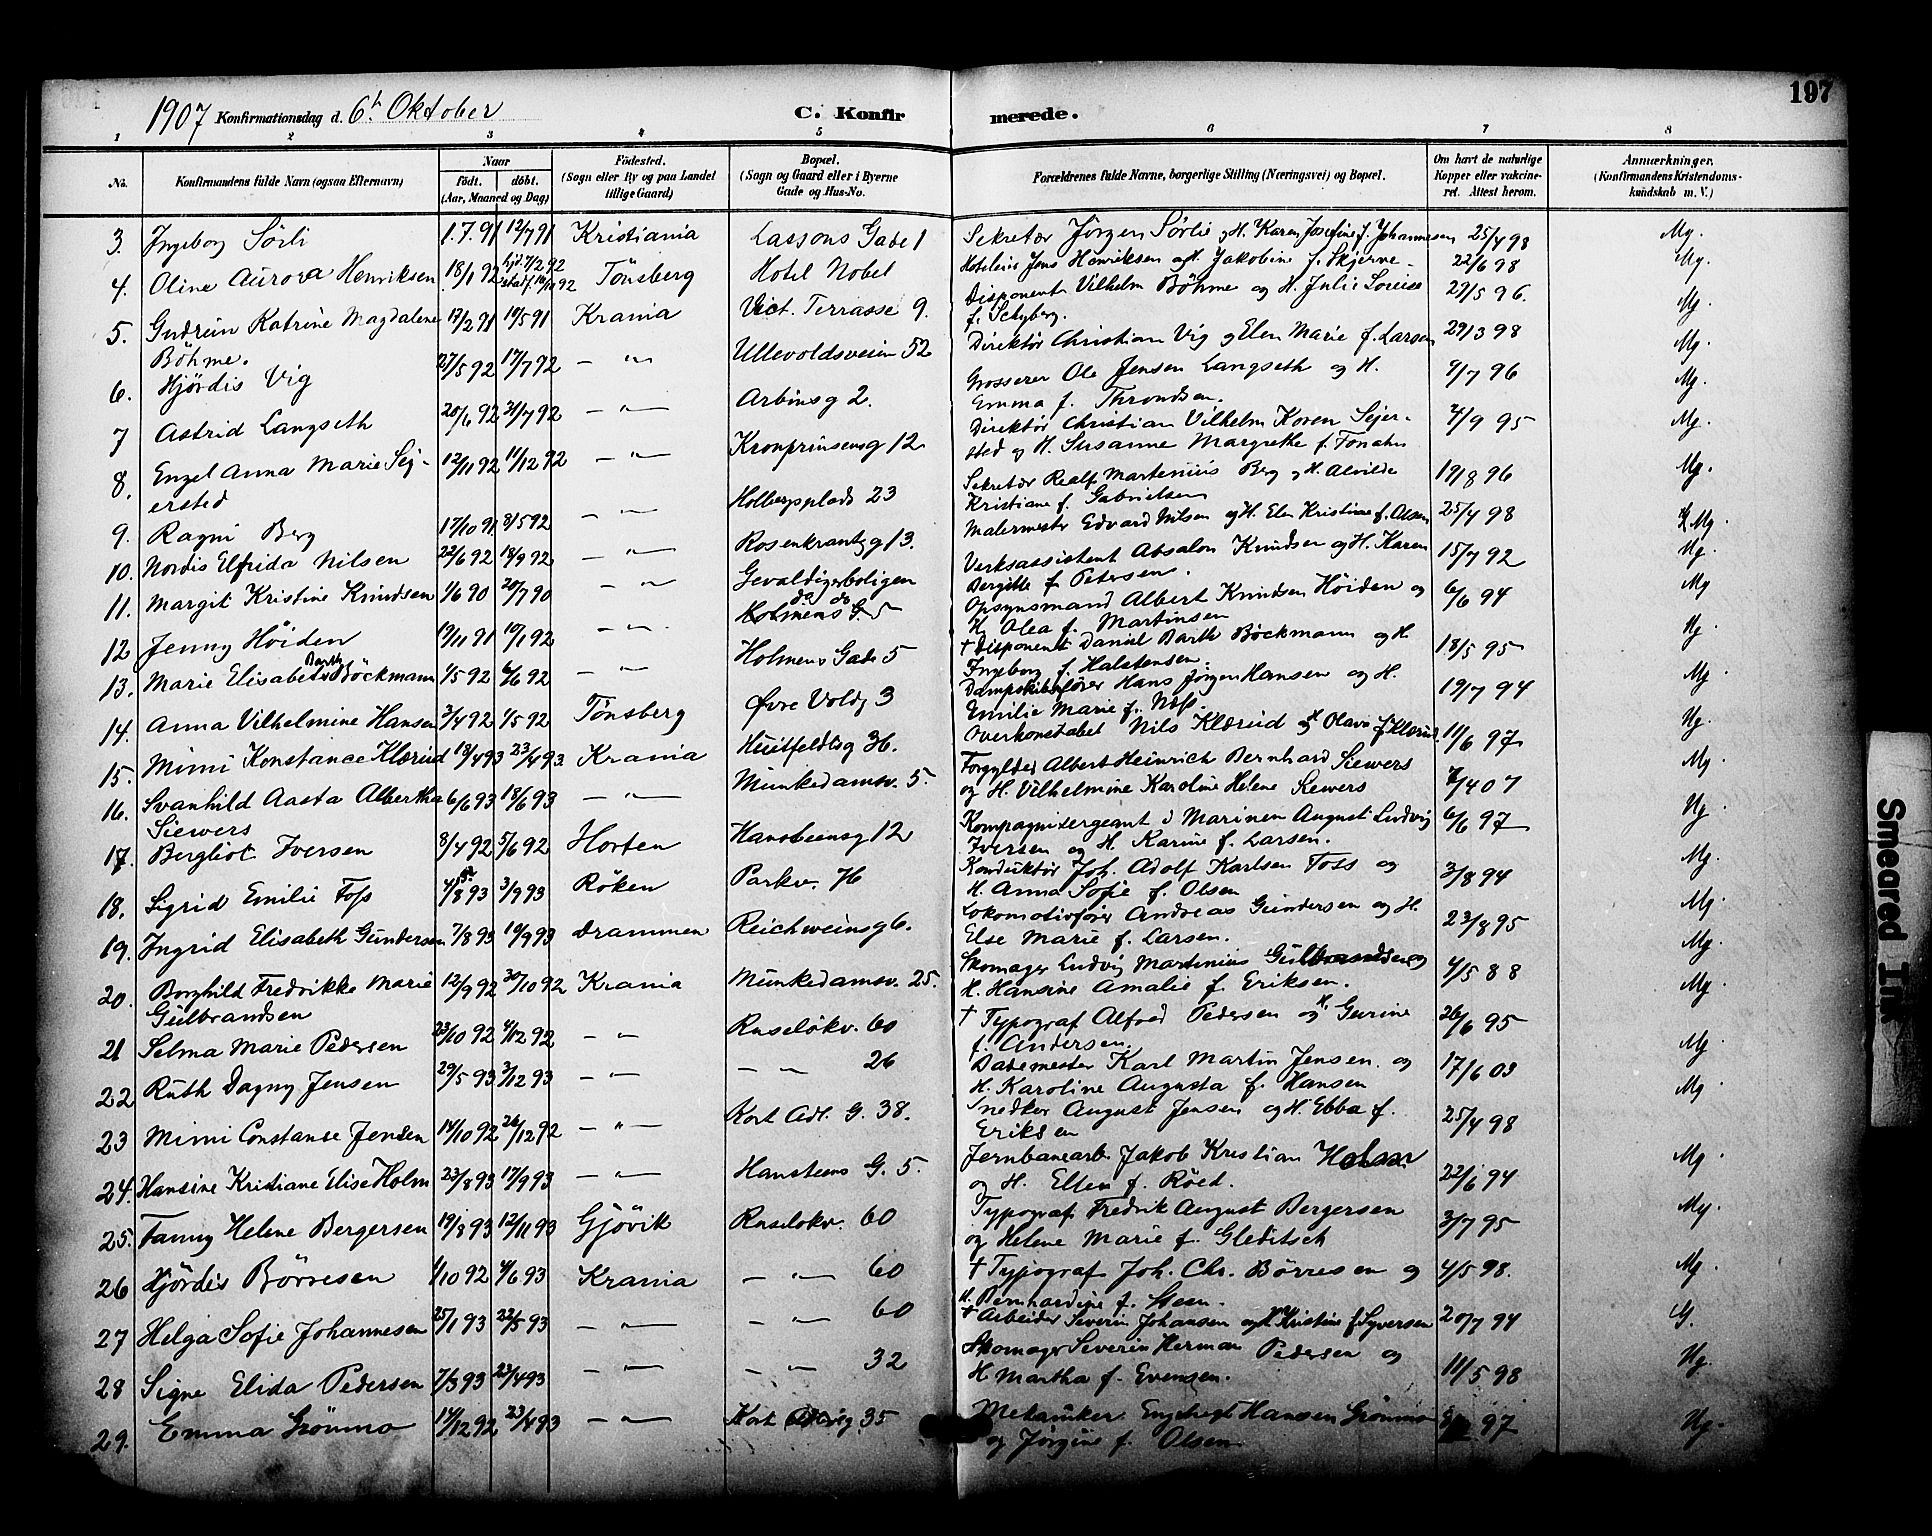 197
1907 Konfirmationsdag d. 6t Oktober C. Konfirmerede.
1 2 3 4 5 6 7 8
No. Konfirmandens fulde Navn (ogsaa Efternavn) Naar født. døbt. (Aar, Maaned og Dag) Fødested. (Sogn eller By og paa Landet tillige Gaard) Bopæl. (Sogn og Gaard eller i Byerne Gade og Hus-No. Forældrenes fulde Navne, borgerlige Stilling (Næringsvei) og Bopæl. Om havt de naturlige Kopper eller vaccineret. Attest herom. Anmærkninger, (Konfirmandens Kristendomskundskab m. V.)
3. Ingeborg Sörli 1.7.91 12/7 91 Kristiania Lassons Gade 1 Sekretær Jörgen Sörlie og H. Karen Josefine f. Johannesen 25/4 98 Mg.
4. Oline Aurora Henriksen 18/1 92 hjd. 7/2 92 Tönsberg Hotel Nobel Hoteleier Jens Henriksen og H. Jakobine f. Skjerve 22/6 98 Mg.
5. Gudrun Katrine Magdalene Böhme. 17/2 91 10/5 91 Krania Vict. Terrasse 9. Disponent Vilhelm Böhme og H. Julie Lovise f. Schyberg. 29/5 96. Mg
6. Hjördis Vig 27/5 92 17/7 92 — " — Ullevoldsveien 52 Direktör Christian Vig og Elen Marie f. Larsen 29/3 98 Mg.
7 Astrid Langseth 20/6 92 31/7 92 — " — Arbinsg 2. Grosserer Ole Jensen Langseth og H. Emma f. Throndsen. 9/7 96 Mg.
8. Engel Anna Marie Sejersted 12/11 92 11/12 92 — " — Kronprinsensg 12 Direktör Christian Vilhelm Koren Sejersted og H. Susanne Margrethe f. Fonahn 4/9 95 Mg.
9. Ragni Berg 17/10 91 8/5 92 — " — Holbergsplads 23 Sekretær Realf Martenius Berg og H. Alvilde Kristiane f. Gabrielsen 19/8 96 Mg.
10. Nordis Elfrida Nilsen 22/6 92 18/9 92 — " — Rosenkrantzg 13. Malermester Edvard Nilsen og H. Elen Kristine f. Olsen 25/4 98 Mg.
11. Margit Kristine Knudsen 1/6 90 20/7 90 — " — Gevaldigerboligen Verksassistent Absalon Knudsen og H. Karen Bergitte f. Petersen. 15/7 92 Mg.
12 Jenny Höiden 19/11 91 10/1 92 — " — do do Holmens G. 5 Opsynsmand Albert Knudsen Höiden og H. Olea f. Martinsen 6/6 94 Mg
13. Marie Elisabeth Barth Böckmann 1/5 92 6/6 92 — " — Holmens Gade 5 + Disponent Daniel Barth Böckmann og H. Ingeborg f. Halstensen. 18/5 95 Mg.
14. Anna Vilhelmine Hansen 3/4 92 1/5 92 Tönsberg Øvre Voldg 3 Dampskibsfører Hans Jörgen Hansen og H. Emilie Marie f. Næss. 19/7 94 Mg.
15. Mimi Konstance Klærud 13/4 93 23/4 93 Krania Huitfeldtsg 36. Overkonstabel Nils Klærud og H. Olava f. Klærud. 11/6 97 Mg.
16. Svanhild Aasta Albertha Siewers 6/6 93 18/6 93 — " — Munkedamsv. 5. Forgylder Albert Heinrich Bernhard Siewers og H. Vilhelmine Karoline Helene Siewers /4 07 Mg.
17. Bergliot Iversen 8/4 92 5/6 92 Horten Hansteensg 12 Kompagnisergeant i Marinen August Ludvig Iversen og H. Karine f. Larsen. 6/6 97 Mg
18. Sigrid Emilie Foss 4/8 93 3/9 93 Röken Parkv. 76 Konduktør Joh. Adolf Karlsen Foss og H. Anna Sofie f. Olsen 3/8 94 Mg.
19. Ingrid Elisabeth Gundersen 7/8 93 10/9 93 Drammen Reichweinsg 6. Lokomotivfører Andreas Gundersen og H. Else Marie f. Larsen. 23/8 95 Mg.
20. Borghild Fredrikke Marie Gulbrandsen 12/9 92 30/10 92 Krania Munkedamsv. 25. Skomager Ludvig Martinius Gulbrandsen og H. Hansine Amalie f. Eriksen. 4/5 88 Mg.
21 Selma Marie Pedersen 23/10 92 4/12 92 — " Ruselökv. 60 + Typograf Alfred Pedersen og H. Gurine f. Andersen. 26/6 95 Mg.
22 Ruth Dagny Jensen 29/5 93 3/12 93 — " — — " 26 Bademester Karl Martin Jensen og H. Karoline Augusta f. Hansen 17/6 03 Mg.
23 Mimi Constanse Jensen 14/10 92 26/12 92 — " — Kort Adl. G. 38. Snedker August Jensen og H. Ebba f. Eriksen 25/4 98 Mg
24. Hansine Kristiane Elise Holm 23/8 93 17/9 93 — " — Hansteens G. 5. Jernbanearb. Jakob Kristian Holm og H. Ellen f. Röed. 22/6 94 Mg.
25. Fanny Helene Bergersen 19/8 93 12/11 93 Gjövik Ruselökv. 60 Typograf Fredrik August Bergersen og Helene Marie f. Gleditsch 3/7 95 Mg.
26 Hjördis Börresen 1/10 92 4/6 93 Krania — " — 60 + Typograf Joh. Chr. Börresen og H. Bernhardine f. Steen. 4/5 98. Mg.
27 Helga Sofie Johannesen 25/1 93 22/5 93 — " — — " — 60 + Arbeider Severin Johansen og H. Kristine f. Syversen 20/7 94 G.
28 Signe Elida Pedersen 7/3 93 23/4 93 — " — — " — 32 Skomager Severin Herman Pedersen og H Martha f. Evensen. 11/5 98 Mg.
29. Emma Grönmo 14/12 92 23/4 93 — " — Kort 35 Mekaniker Engebregt Hansen Grönmo og Jörgine f. Olsen. 97 Mg.
Smeared Ink